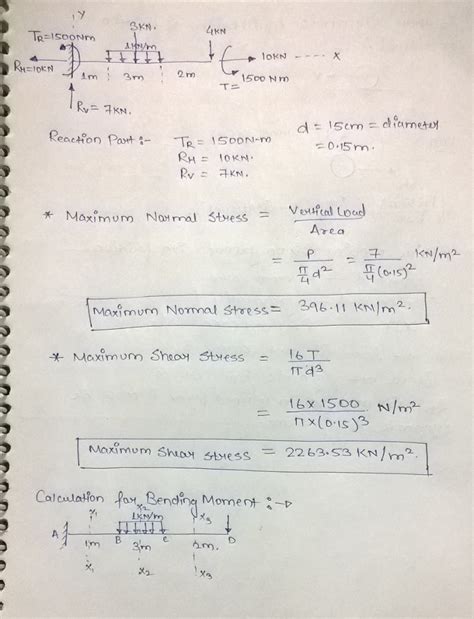 Y
3KN.
4KN
TR=1500Nm
1KN/m
10KN ---- X
RH=10KN
1m 3m 2m
T= 1500Nm
RV = 7KN.
Reaction Part :- TR = 1500N-m d = 15cm = diameter
RH = 10KN. = 0.15m.
RV = 7KN.
* Maximum Normal Stress = Vertical Load / Area
= P / π/4 d² = 7 / π/4 (0.15)² KN/m²
Maximum Normal Stress = 396.11 KN/m².
* Maximum Shear Stress = 16T / πd³
= 16×1500 / π×(0.15)³ N/m²
Maximum Shear Stress = 2263.53 KN/m².
Calculation for Bending Moment :-
x1 x2 x3
1KN/m
A B C D
1m 3m 2m.
x1 x2 x3